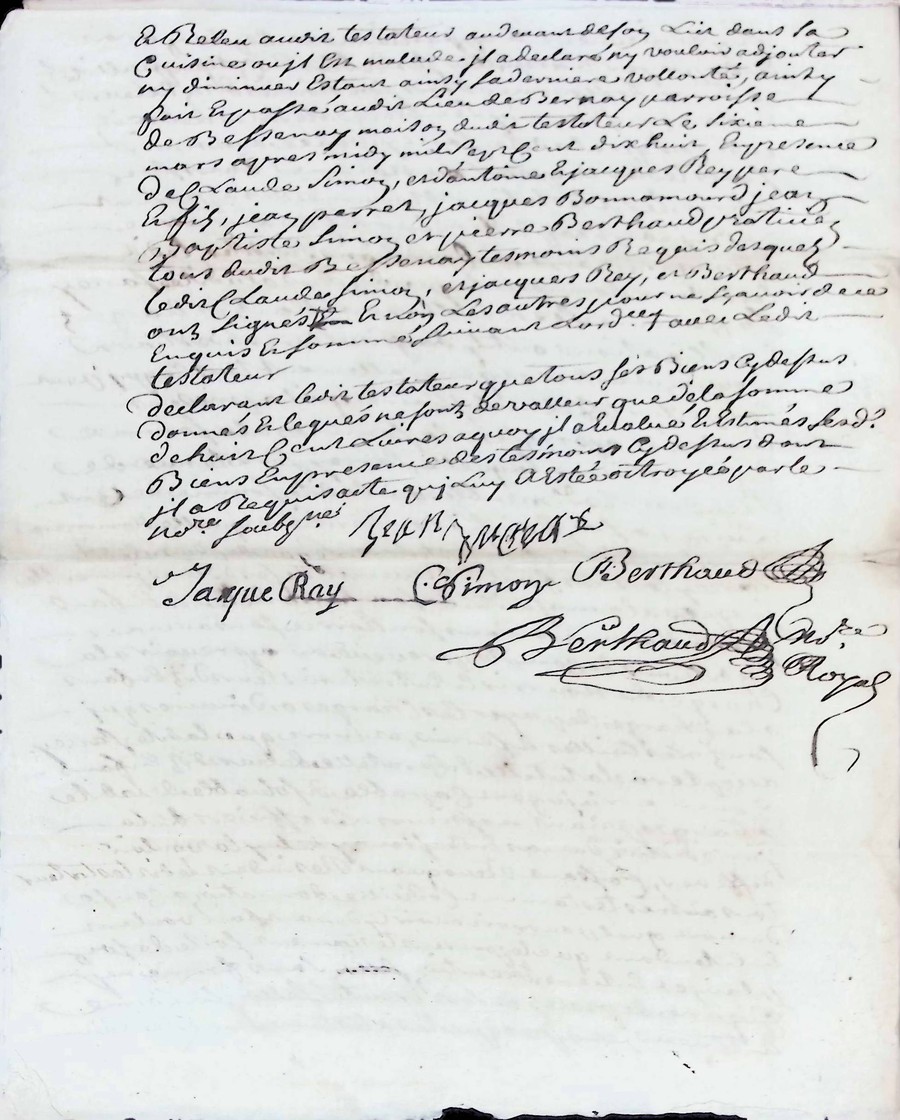 Et Releu audit testateur audevant de son Lict dans la
Cuisine ou jl Est malade jl a declaré ny vouloir adjouter
ny diminuer Estant ainsy sa derniere vollonté, ainsy
fait Et passé audit Lieu de Bernay parroisse
de Bessenay maison dudit testateur Le sixieme
mars apres midy mil sept Cent dix huit, En presence
de Claude Simon, et d'antoine Et jacques Rey pere
Et fils, jean perret, jacques Bonnamour, jean
Baptiste Simon et pierre Berthaud praticien
tous dudit Bessenay tesmoins Requis desquels
ledit Claude Simon, et jacques Rey, et Berthaud
ont signés Et non Les autres pour ne sçavoir de ce
Enquis Et sommé suivant L'ord.ce † avec Ledit
testateur
declarant ledit testateur que tous ses Biens Cy dessus
donnés Et legués ne sont de valleur que de la somme
de huit Cent Livres a quoy jl a Evalué Et Estimés sesd.
Biens En presence des tesmoins Cy dessus dont
jl a Requis acte qui Luy A Esté octroyé par le
no.re soubsigné
Jaque Ray C. Simon P. Berthaud
Berthaud No.re
Royal